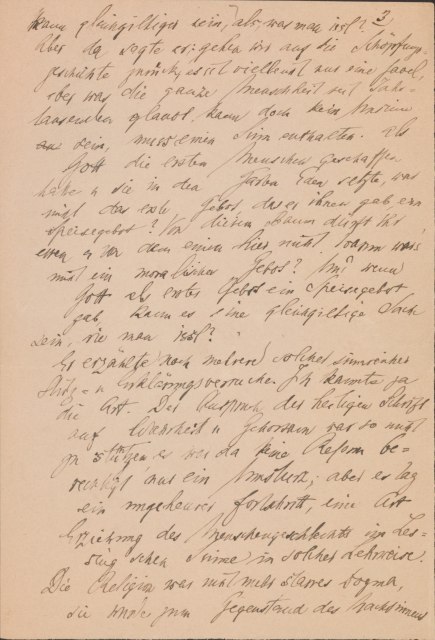 kann gleichgiltiger sein, als, was man isst? 3
Aber da sagte er: gehen wir auf die Schöpfungs-
geschichte zurück, es ist vielleicht nur eine Fabel,
aber was die ganze Menschheit seit Jahr-
tausenden glaubt, kann doch kein Unsinn
sein, muss einen Sinn enthalten. Als
Gott die ersten Menschen geschaffen
habe u sie in den Garten Eden setzte, was
war das erste Gebot, das er ihnen gab ein
Speisegebot? Von diesem Baum dürft ihr
essen u von dem einen hier nicht. Warum war's
nicht ein moralisches Gebot? Nun, wenn
Gott als erstes Gebot ein Speisegebot
gab, kann es eine gleichgiltige Sache
sein, wie man isst?
Er erzählte noch mehrere solcher sinnreicher
u Erklärungsversuche. Ich kannte ja
die Art. Der Anspruch der heiligen Schrift
auf Wahrheit u Gehorsam war so nicht
zu stützen, es war da keine Reform be-
rechtigt, nur ein Umsturz; aber es lag
ein ungeheurer Fortschritt, eine Art
Erziehung des Menschengeschlechts im Les-
sing'schen Sinne in solcher Lehrweise.
Die Religion war nicht mehr starres Dogma,
sie wurde zum Gegenstand des Nachsinnens